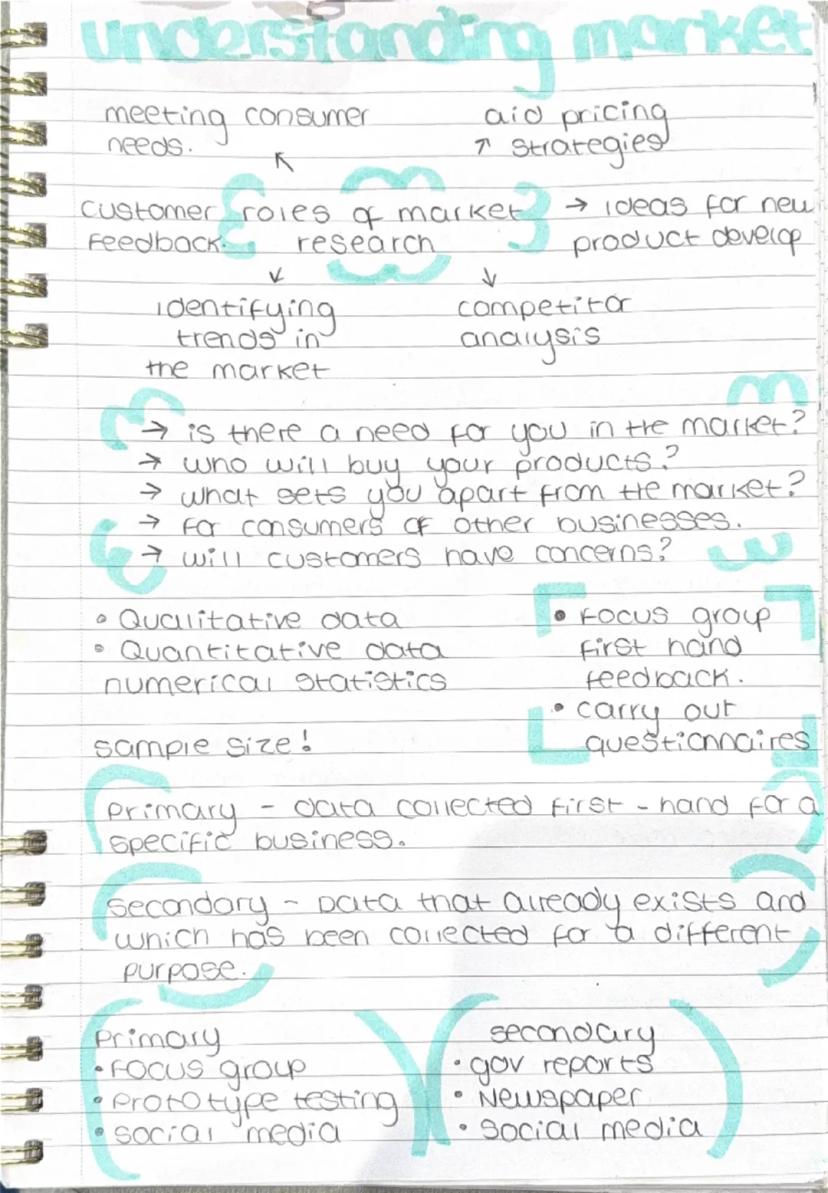 understanding market
meeting consumer
needs.
aid pricing
↗ strategies
↖
customer
feedback.
roles of market
research
→ ideas for new
product develop
↙ ↘
identifying
trends in
the market
competitor
analysis
→ is there a need for you in the market?
→ who will buy your products?
→ what sets you apart from the market?
→ for consumers of other businesses.
→ will customers have concerns?
• Qualitative data
• Quantitative data
numerical statistics
sample size!
• Focus group
first hand
feedback.
• carry out
questionnaires
Primary - data collected first-hand for a
specific business.
secondary - Data that already exists and
which has been collected for a different
purpose.
Primary
• Focus group
• Prototype testing
• social media
secondary
• gov reports
• Newspaper
• social media